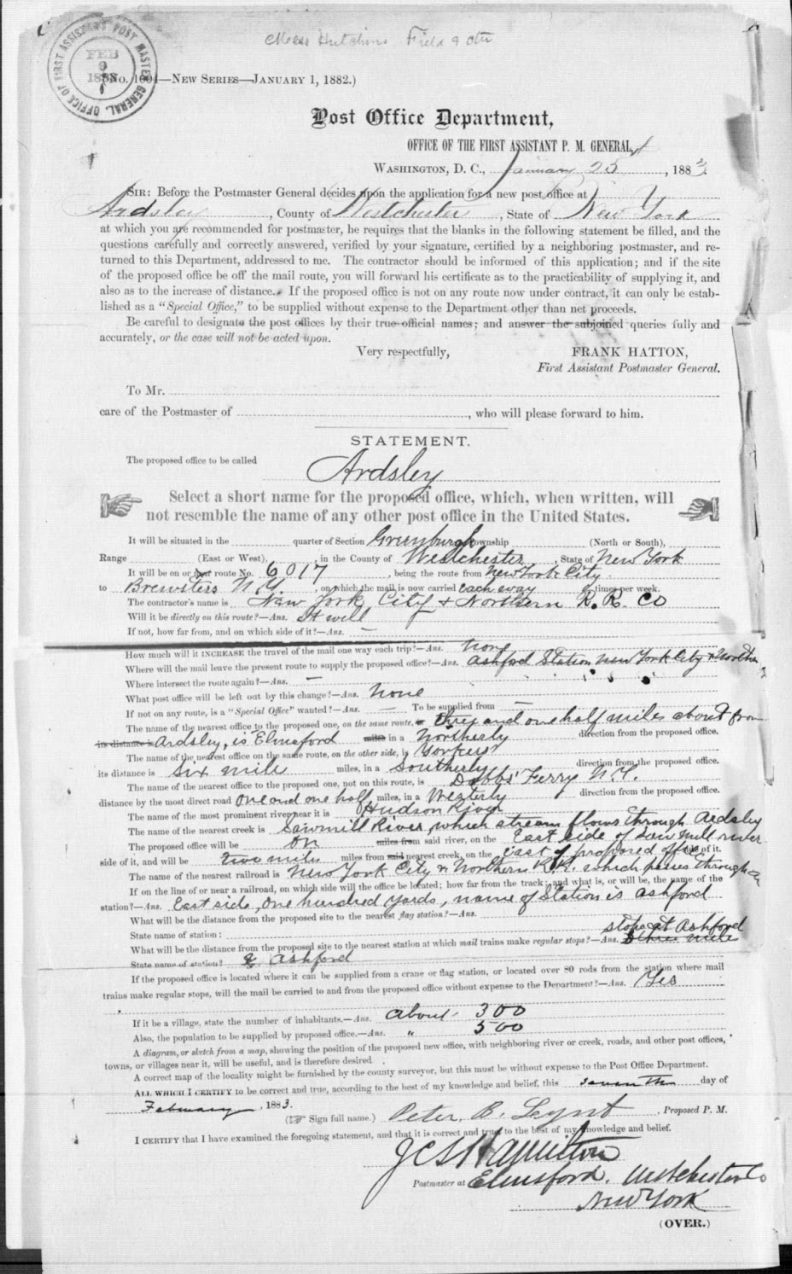 Field & Otr
OFFICE OF FIRST ASSISTANT POST MASTER GENERAL.
FEB
9
No. 1004—NEW SERIES—JANUARY 1, 1882.)
Post Office Department,
OFFICE OF THE FIRST ASSISTANT P. M. GENERAL,
WASHINGTON, D. C., January 25, 1883.
SIR: Before the Postmaster General decides upon the application for a new post office at
Ardsley, County of Westchester, State of New York
at which you are recommended for postmaster, he requires that the blanks in the following statement be filled, and the
questions carefully and correctly answered, verified by your signature, certified by a neighboring postmaster, and re-
turned to this Department, addressed to me. The contractor should be informed of this application; and if the site
of the proposed office be off the mail route, you will forward his certificate as to the practicability of supplying it, and
also as to the increase of distance. If the proposed office is not on any route now under contract, it can only be estab-
lished as a "Special Office," to be supplied without expense to the Department other than net proceeds.
Be careful to designate the post offices by their true official names; and answer the subjoined queries fully and
accurately, or the case will not be acted upon.
Very respectfully, FRANK HATTON,
First Assistant Postmaster General.
To Mr.
care of the Postmaster of , who will please forward to him.
STATEMENT.
The proposed office to be called Ardsley
Select a short name for the proposed office, which, when written, will
not resemble the name of any other post office in the United States.
It will be situated in the quarter of Section Greenburgh Township (North or South),
Range (East or West), in the County of Westchester, State of New York
It will be on or near route No. 6017, being the route from New York City
to Brewsters N.Y., on which the mail is now carried each way 6 times per week.
The contractor's name is New York City & Northern R. R. Co
Will it be directly on this route?—Ans. It will
If not, how far from, and on which side of it?—Ans. —
How much will it INCREASE the travel of the mail one way each trip?—Ans. None
Where will the mail leave the present route to supply the proposed office?—Ans. Ashford Station New York City & Northn
Where intersect the route again?—Ans. —
What post office will be left out by this change?—Ans. None
If not on any route, is a "Special Office" wanted?—Ans. — To be supplied from —
The name of the nearest office to the proposed one, on the same route, is and one half miles about from
its distance is Ardsley, is Elmsford miles in a Northerly direction from the proposed office.
The name of the nearest office on the same route, on the other side, is Yonkers
its distance is six mile miles, in a Southerly direction from the proposed office.
The name of the nearest office to the proposed one, not on this route, is Dobbs' Ferry N.Y.
distance by the most direct road one and one half miles, in a Westerly direction from the proposed office.
The name of the most prominent river near it is Hudson River
The name of the nearest creek is Sawmill River, which stream flows through Ardsley
The proposed office will be on miles from said river, on the East side of saw mill river
side of it, and will be two miles miles from said nearest creek, on the east of proposed office of it.
The name of the nearest railroad is New York City & Northern R.R. which passes through
If on the line of or near a railroad, on which side will the office be located; how far from the track; and what is, or will be, the name of the
station?—Ans. East side, One hundred yards, name of Station is Ashford
What will be the distance from the proposed site to the nearest flag station?—Ans.
State name of station:
What will be the distance from the proposed site to the nearest station at which mail trains make regular stops?—Ans. stops at Ashford
State name of station? Ashford
If the proposed office is located where it can be supplied from a crane or flag station, or located over 80 rods from the station where mail
trains make regular stops, will the mail be carried to and from the proposed office without expense to the Department?—Ans. Yes
If it be a village, state the number of inhabitants.—Ans. about 300
Also, the population to be supplied by proposed office.—Ans. " 500
A diagram, or sketch from a map, showing the position of the proposed new office, with neighboring river or creek, roads, and other post offices,
towns, or villages near it, will be useful, and is therefore desired.
A correct map of the locality might be furnished by the county surveyor, but this must be without expense to the Post Office Department.
ALL WHICH I CERTIFY to be correct and true, according to the best of my knowledge and belief, this seventh day of
February, 1883.
(Sign full name.) Peter B. Lynt, Proposed P. M.
I CERTIFY that I have examined the foregoing statement, and that it is correct and true to the best of my knowledge and belief.
J C S Hamilton
Postmaster at Elmsford, Westchester Co
New York
(OVER.)